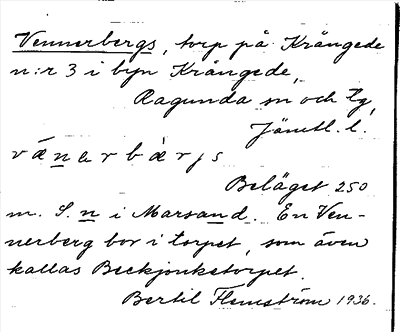 Vennerbergs, torp på Krångede
n:r 3 i byn Krångede,
Ragunda sn och tg,
Jämtl. l.
vä́nærbær̀js
Beläget 250
m. S. n i Marsand. En Ven-
nerberg bor i torpet, som även
kallas Beckjonkstorpet.
Bertil Flemström 1936.